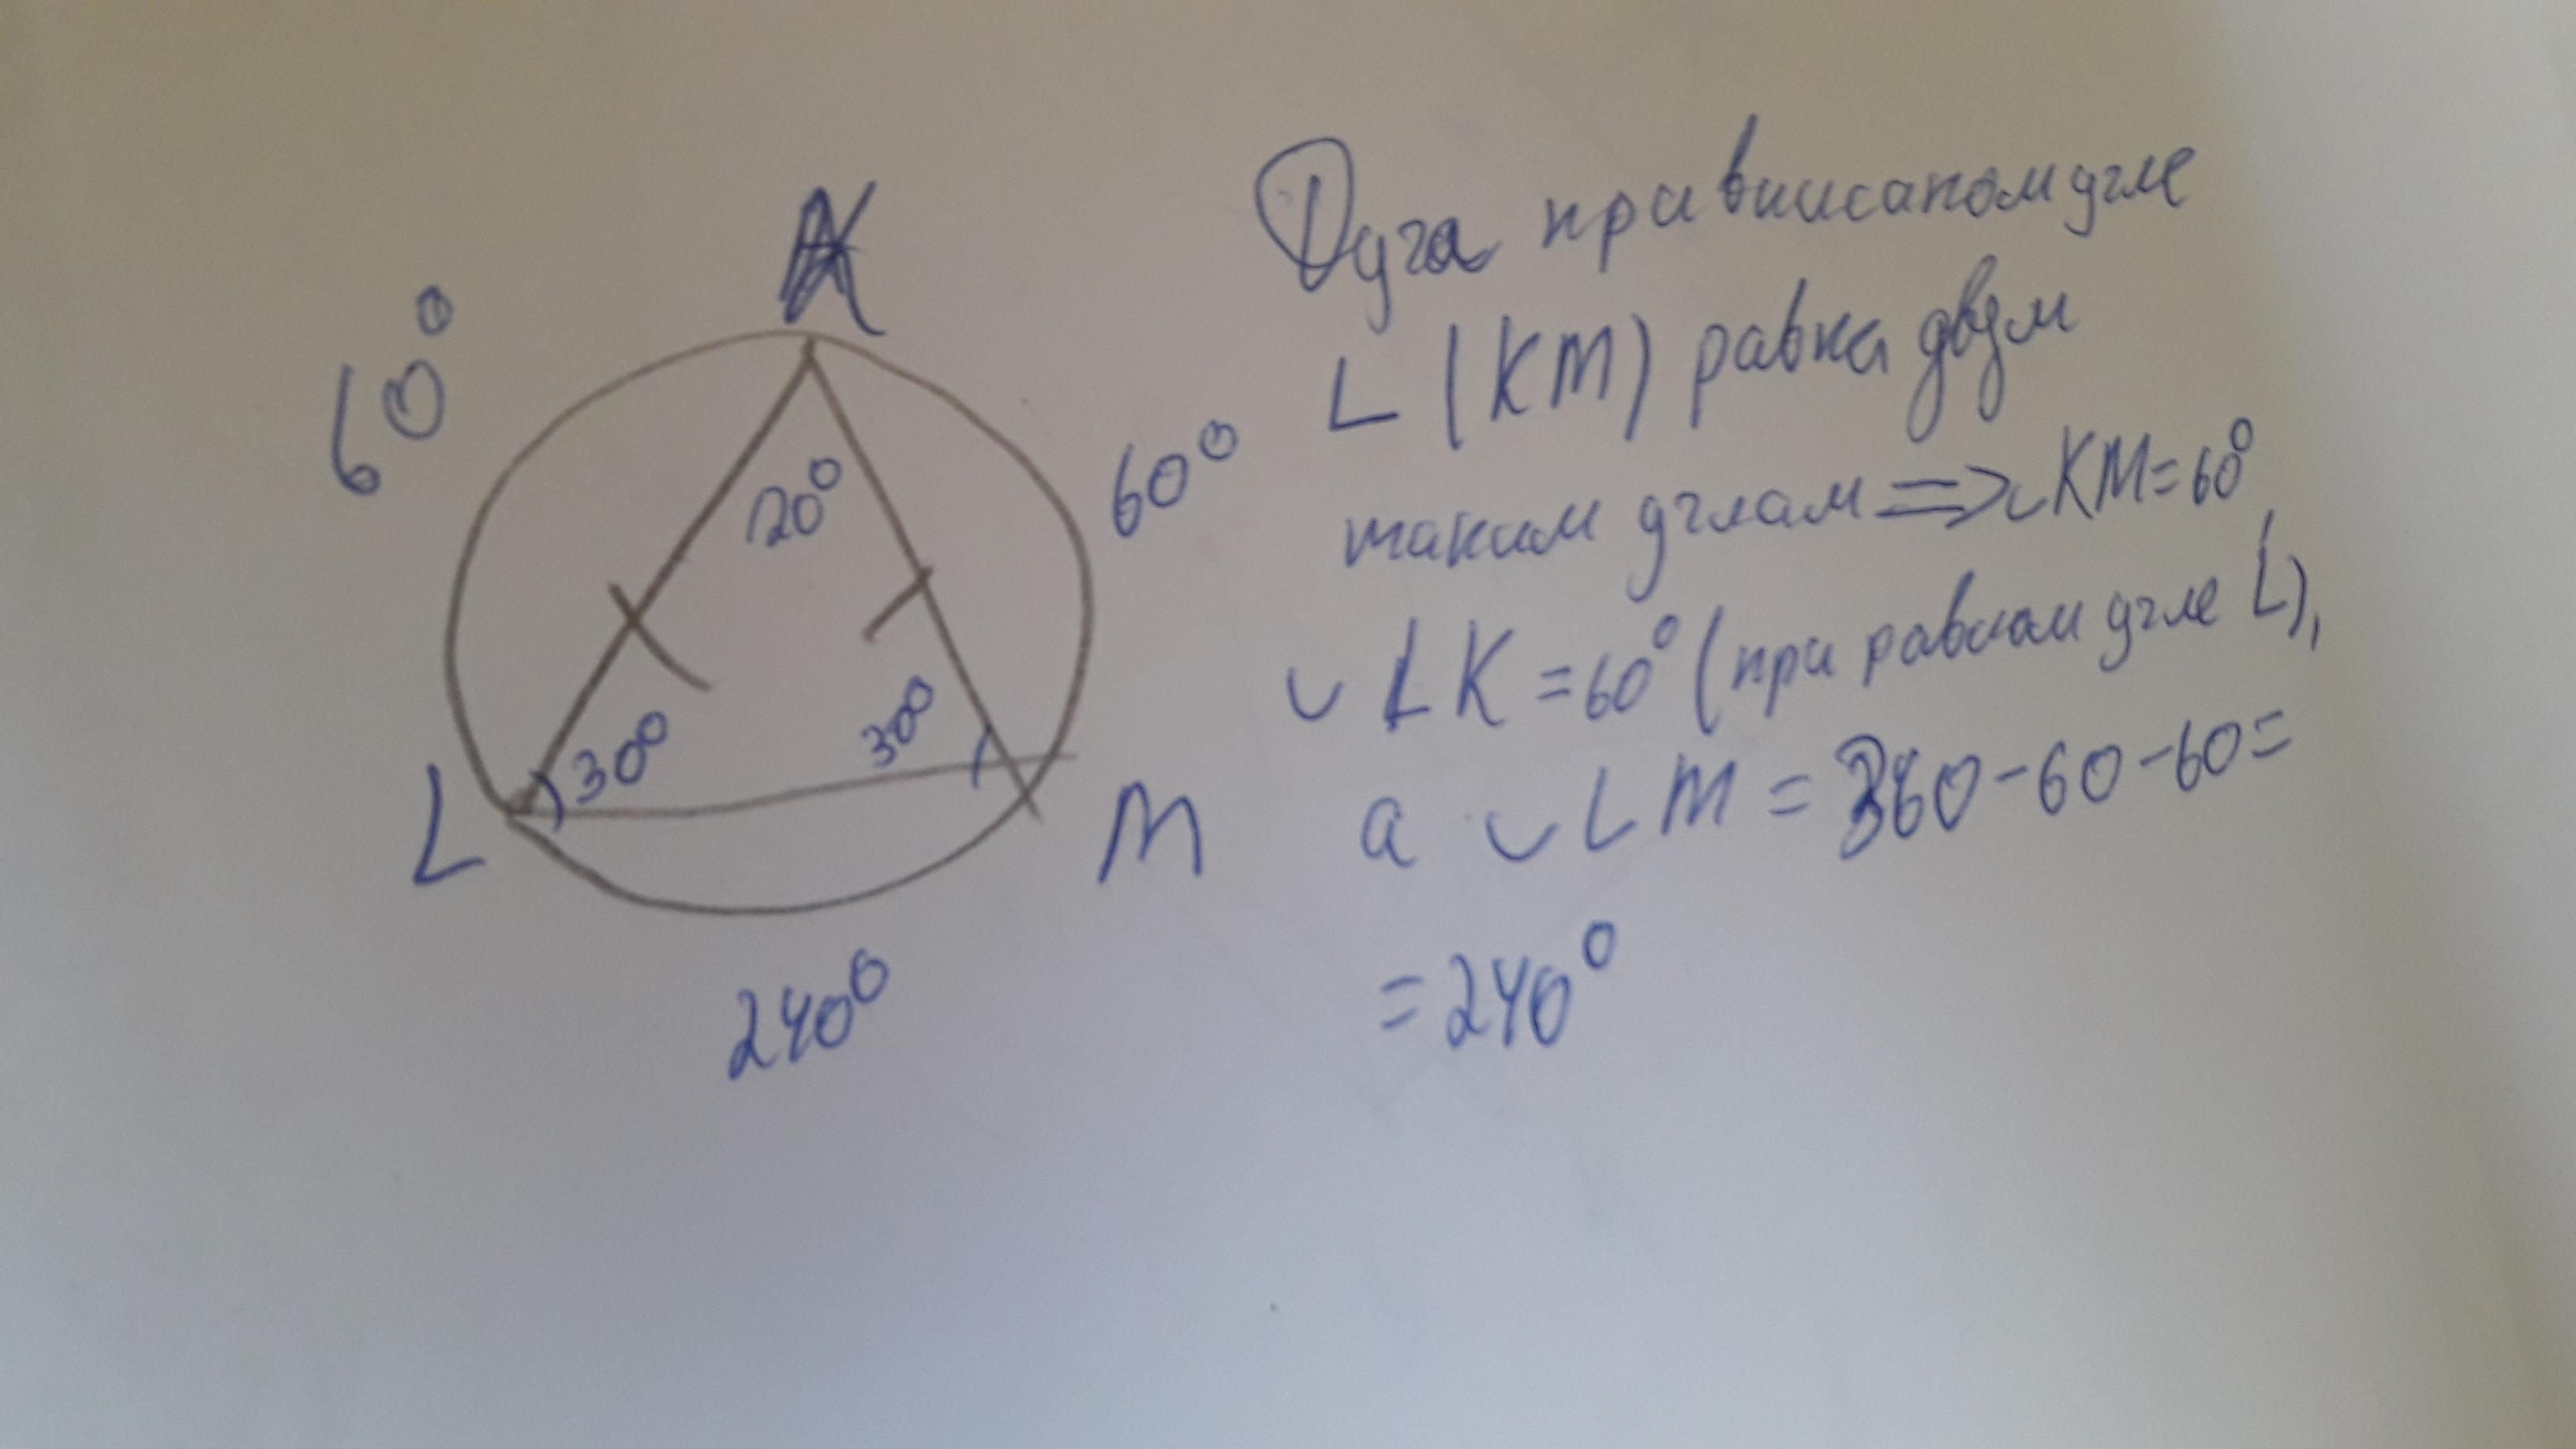 K
60°
60°
120°
30°
30°
L
M
240°
Дуга при вписаном угле
L (KM) равна двум
таким углам => ◡KM=60°,
◡ LK =60° (при равном угле L),
а ◡ LM = 360-60-60=
=240°